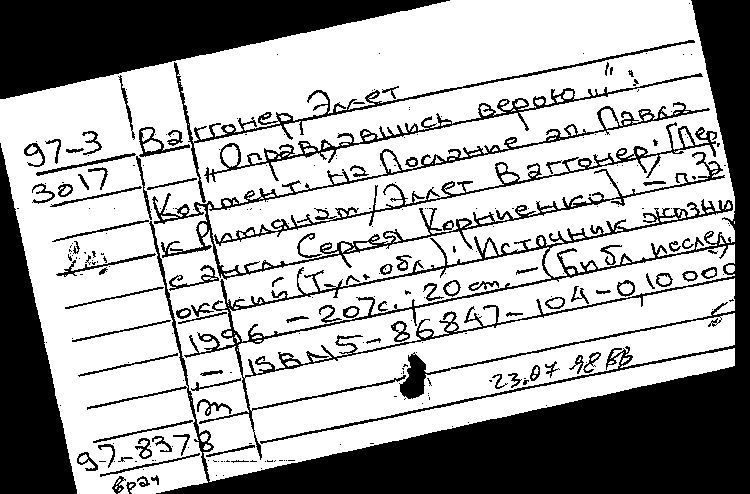 97-3
3017
Ваггонер, Эллет
"Оправдавшись верою...":
Коммент. на Послание ап. Павла
к Римлянам / Эллет Ваггонер. [Пер.
с англ. Сергея Корниенко]. - п. За
окский (Тул. обл.): Источник жизни
1996. - 207с.; 20 см. - (Библ. исслед.)
. - ISBN 5-86847-104-0, 10000
т
23.07 98 ВВ
97-8378
врач